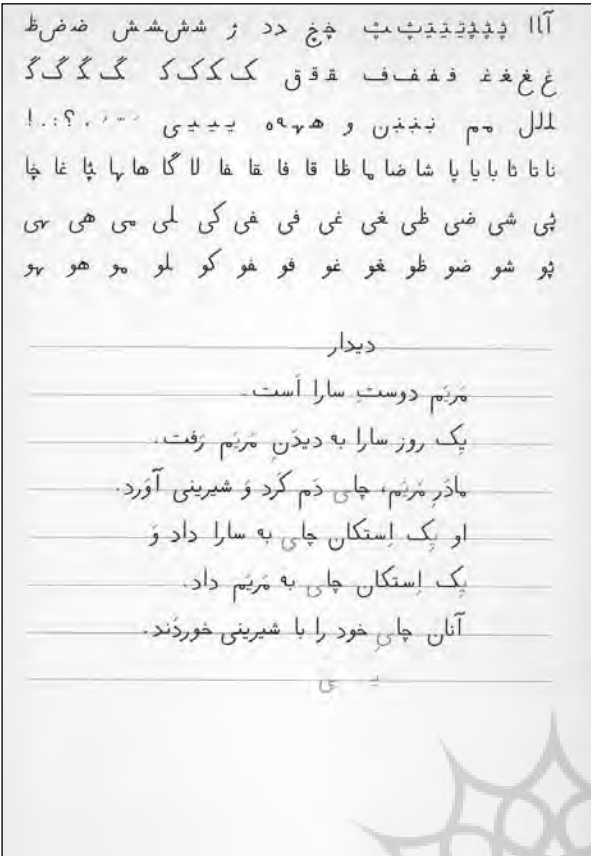 آاا پپپتپتپتپث چچ دد ژ ششش‌ش ضض‌ظ
غغغغ ففف‌ف ققق ک‌ککک گ‌گگگ
للل مم نننن و ههه‌ه ییی‌ی ؟ : . !
نا تا ثا با یا پا شا ضا ما ظا قا فا قا فا لا گا ها ها پا غا چا
پی شی ضی ظی غی غی فی فی کی لی می هی هی
پو شو ضو ظو غو غو فو فو کو لو مو هو هو
دیدار
مَریَم دوستِ سارا اَست.
یِک روز سارا به دیدَنِ مَریَم رَفت.
مادَرِ مَریَم، چای دَم کَرد وَ شیرینی آوَرد.
او یِک اِستکان چای به سارا داد وَ
یِک اِستکان چای به مَریَم داد.
آنان چایِ خود را با شیرینی خوردَند.
یـ ی